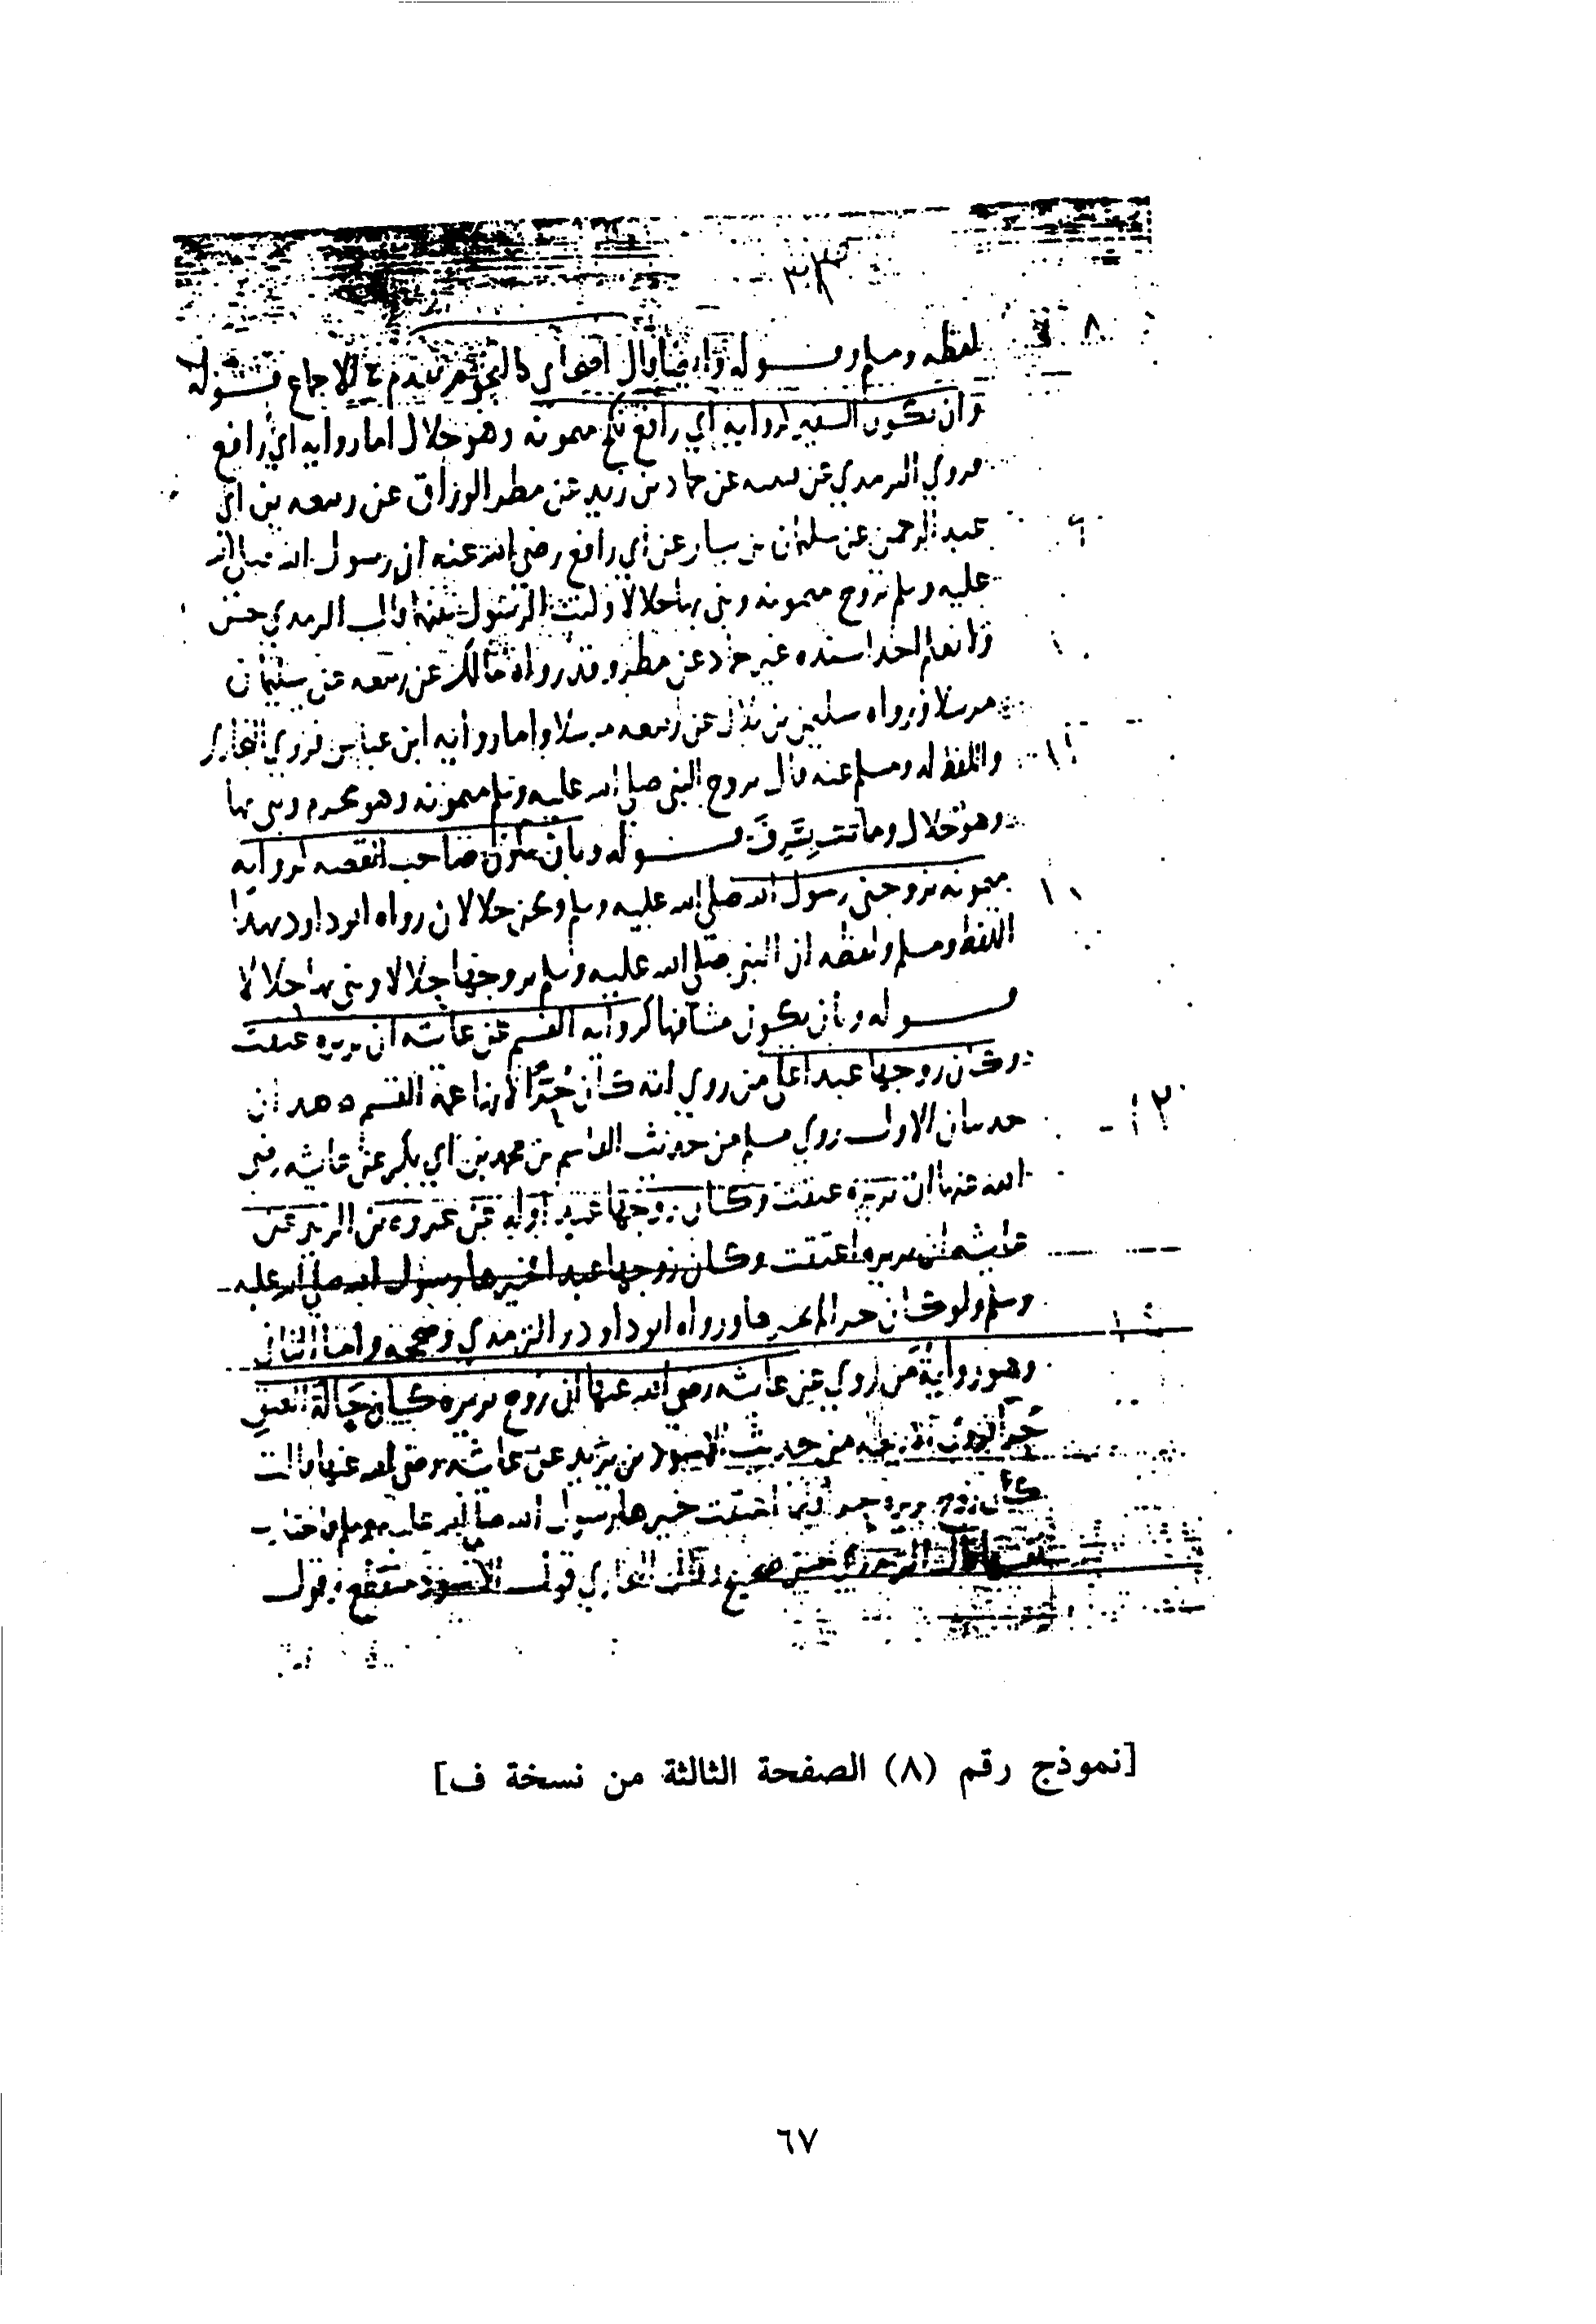 ٣٣
٨
لفظه ومسلم قوله وايضا قال اصحابي كالنجوم تقدم في الاجماع قوله
وان يكون السفير لرواية ابي رافع نكح ميمونه وهو حلال اما رواية ابي رافع
فروي الترمذي عن قتيبه عن حماد بن زيد عن مطر الوراق عن ربيعه بن ابي
عبد الرحمن عن سليمان بن يسار عن ابي رافع رضي الله عنه ان رسول الله صلى الله
٩
عليه وسلم تزوج ميمونه وبنى بها حلالا وكنت الرسول بينهما قال الترمذي حسن
ولا نعلم احدا اسنده غير حماد عن مطر وقد رواه مالك عن ربيعه عن سليمان
١٠
مرسلا ورواه سليمن بن بلال عن ربيعه مرسلا واما رواية ابن عباس فروي البخاري
واللفظ له ومسلم عنه قال تزوج النبي صلى الله عليه وسلم ميمونه وهو محرم وبنى بها
١١
وهو حلال وماتت بسَرِف قوله وبان يكون صاحب القصه كروايه
ميمونه تزوجني رسول الله صلى الله عليه وسلم ونحن حلالان رواه ابو داود بهذا
اللفظ ومسلم ولفظه ان النبي صلى الله عليه وسلم تزوجها حلالا وبنى بها حلالا
قوله وبان يكون مشافها كروايه القسم عن عائشه ان بريره عتقت
وكان زوجها عبدا على من روي انه كان حُرًّا لانها عمة القسم هذان
١٢
حديثان الاول روي مسلم من حديث القاسم بن محمد بن ابي بكر عن عائشه رضي
الله عنها ان بريره عتقت وكان زوجها عبدا وله عن عروه بن الزبير عن
عائشه ان بريره اعتقت وكان زوجها عبدا فخيرها رسول الله صلى الله عليه
وسلم ولو كان حرا لم يخيرها ورواه ابو داود والترمذي وصححه واما الثاني
وهو رواية من روي عن عائشه رضي الله عنها ان زوج بريره كان حالة العتق
حُرا من حديث الاسود بن يزيد عن عائشه رضي الله عنها قالت
كان زوج بريره حرا فلما اعتقت خيرها رسول الله صلى الله عليه وسلم فاختارت
نفسها قال الترمذي حسن صحيح وقال البخاري قول الاسود منقطع وقول
[نموذج رقم (٨) الصفحة الثالثة من نسخة ف]
٦٧